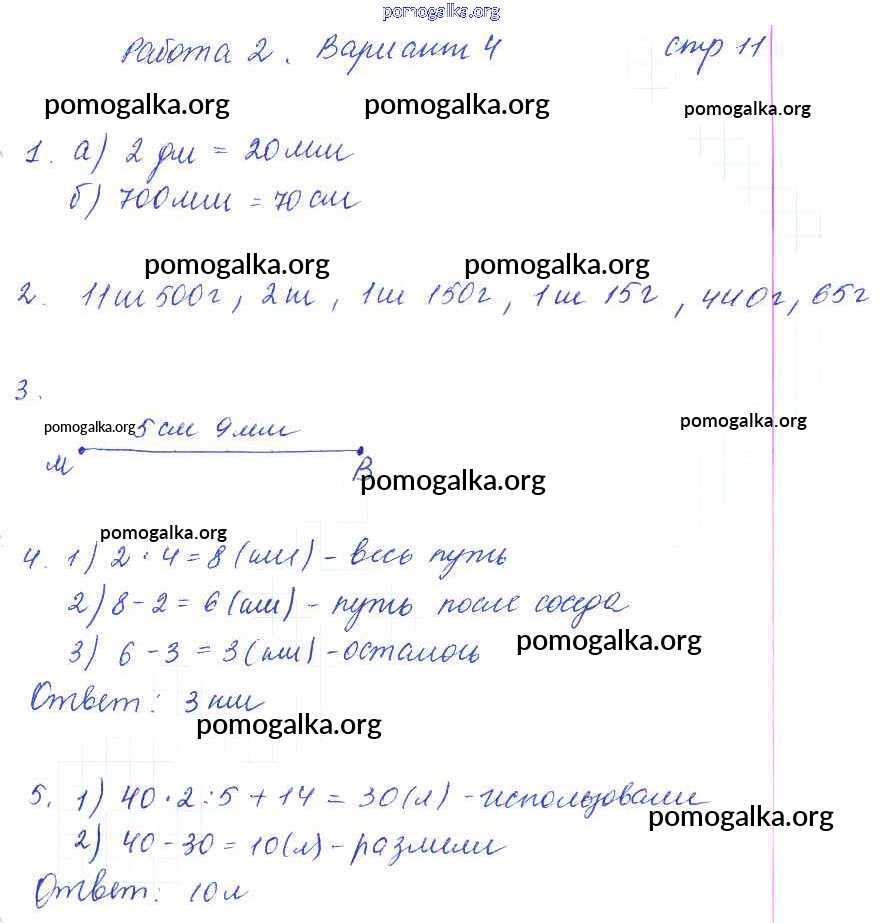 pomogalka.org
Работа 2. Вариант 4 стр 11
pomogalka.org pomogalka.org pomogalka.org
1. а) 2 дм = 20 мм
б) 700 мм = 70 см
pomogalka.org pomogalka.org
2. 11 ш 500 г, 2 ш, 1 ш 150 г, 1 ш 15 г, 440 г, 65 г
3.
pomogalka.org 5 см 9 мм pomogalka.org
М В
pomogalka.org
pomogalka.org
4. 1) 2 · 4 = 8 (км) – весь путь
2) 8 – 2 = 6 (км) – путь после соседа
3) 6 – 3 = 3 (км) – осталось
pomogalka.org
Ответ: 3 км
pomogalka.org
5. 1) 40 · 2 : 5 + 14 = 30 (л) – использовали
pomogalka.org
2) 40 – 30 = 10 (л) – размели
Ответ: 10 л